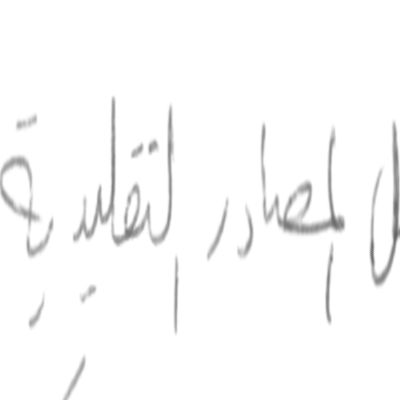 المصادر التقليدية